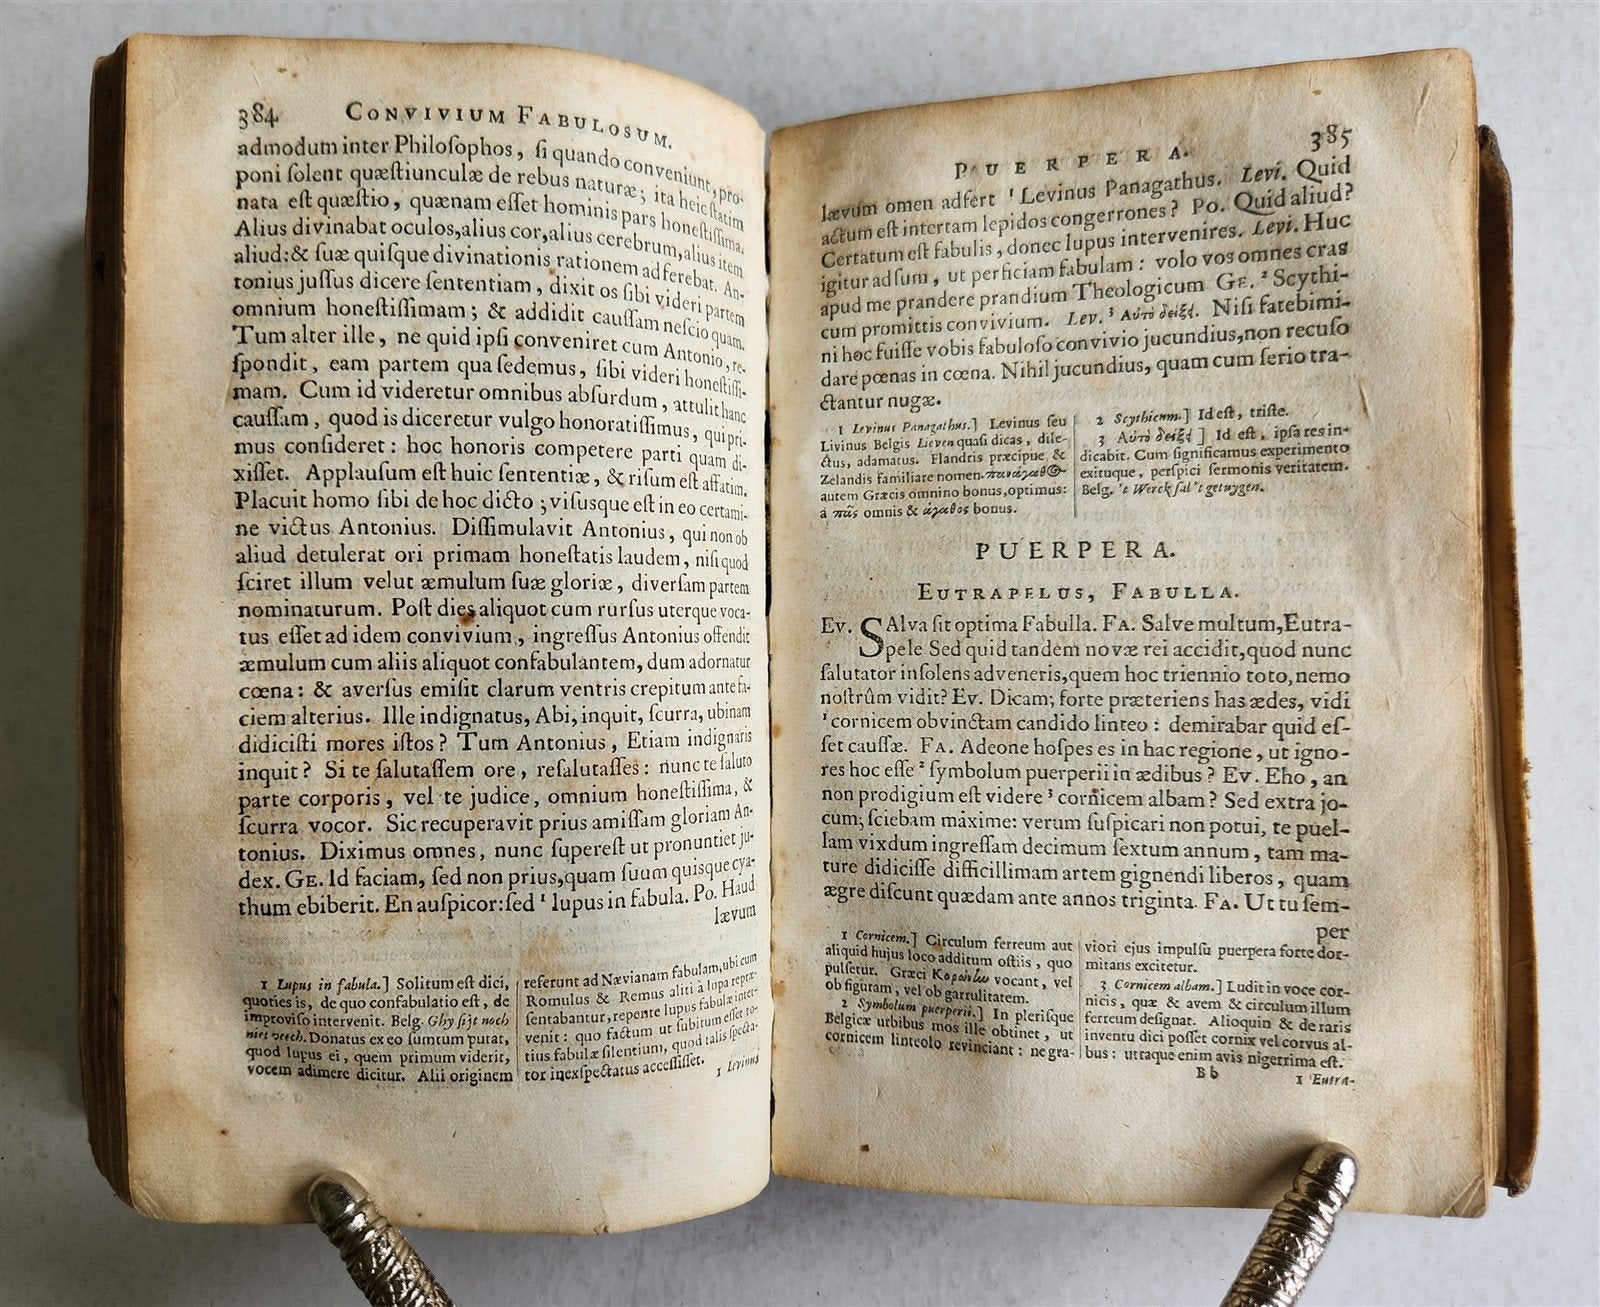 384 CONVIVIUM FABULOSUM.
admodum inter Philoſophos, ſi quando conveniunt, pro-
poni ſolent quæſtiunculæ de rebus naturæ; ita heic ſtatim
nata eſt quæſtio, quænam eſſet hominis pars honeſtiſſima.
Alius divinabat oculos,alius cor,alius cerebrum,alius item
aliud:& ſuæ quiſque divinationis rationem adferebat. An-
tonius juſſus dicere ſententiam, dixit os ſibi videri partem
omnium honeſtiſſimam; & addidit cauſſam neſcio quam.
Tum alter ille, ne quid ipſi conveniret cum Antonio, re-
ſpondit, eam partem qua ſedemus, ſibi videri honeſtiſſi-
mam. Cum id videretur omnibus abſurdum, attulit hanc
cauſſam, quod is diceretur vulgo honoratiſſimus, qui pri-
mus conſideret: hoc honoris competere parti quam di-
xiſſet. Applauſum eſt huic ſententiæ, & riſum eſt affatim.
Placuit homo ſibi de hoc dicto; viſusque eſt in eo certami-
ne victus Antonius. Diſſimulavit Antonius, qui non ob
aliud detulerat ori primam honeſtatis laudem, niſi quod
ſciret illum velut æmulum ſuæ gloriæ, diverſam partem
nominaturum. Poſt dies aliquot cum rurſus uterque voca-
tus eſſet ad idem convivium, ingreſſus Antonius offendit
æmulum cum aliis aliquot confabulantem, dum adornatur
cœna: & averſus emiſit clarum ventris crepitum ante fa-
ciem alterius. Ille indignatus, Abi, inquit, ſcurra, ubinam
didiciſti mores iſtos? Tum Antonius, Etiam indignaris
inquit? Si te ſalutaſſem ore, reſalutaſſes: nunc te ſaluto
parte corporis, vel te judice, omnium honeſtiſſima, &
ſcurra vocor. Sic recuperavit prius amiſſam gloriam An-
tonius. Diximus omnes, nunc ſupereſt ut pronuntiet ju-
dex. GE. Id faciam, ſed non prius,quam ſuum quisque cya-
thum ebiberit. En auſpicor:ſed 1 lupus in fabula. Po. Haud
lævum
1 Lupus in fabula.] Solitum eſt dici,
quoties is, de quo confabulatio eſt, de
improviſo intervenit. Belg. Ghy ſijt noch
niet veech. Donatus ex eo ſumtum putat,
quod lupus ei, quem primum viderit,
vocem adimere dicitur. Alii originem
referunt ad Nævianam fabulam,ubi cum
Romulus & Remus aliti à lupa repræ-
ſentabantur,repente lupus fabulæ inter-
venit: quo factum ut ſubitum eſſet to-
tius fabulæ ſilentium, quod talis ſpecta-
tor inexſpectatus acceſſiſſet.
1 Levinus
PUERPERA. 385
lævum omen adfert 1 Levinus Panagathus. Levi. Quid
actum eſt inter tam lepidos congerrones? Po. Quid aliud?
Certatum eſt fabulis, donec lupus intervenires. Levi. Huc
igitur adſum, ut perficiam fabulam: volo vos omnes cras
apud me prandere prandium Theologicum GE. 2 Scythi-
cum promittis convivium. Lev. 3 Αὐτὸ δείξει. Niſi fatebimi-
ni hoc fuiſſe vobis fabuloſo convivio jucundius,non recuſo
dare pœnas in cœna. Nihil jucundius, quam cum ſerio tra-
ctantur nugæ.
1 Levinus Panagathus.] Levinus ſeu
Livinus Belgis Lieven quaſi dicas, dile-
ctus, adamatus. Flandris præcipue &
Zelandis familiare nomen. πανάγαθος
autem Græcis omnino bonus,optimus:
à πᾶς omnis & ἀγαθὸς bonus.
2 Scythicum.] Id eſt, triſte.
3 Αὐτὸ δείξει] Id eſt, ipſa res in-
dicabit. Cum ſignificamus experimento
exituque, perſpici ſermonis veritatem.
Belg. 't Werck ſal 't getuygen.
PUERPERA.
EUTRAPELUS, FABULLA.
Ev. SAlva ſit optima Fabulla. FA. Salve multum,Eutra-
pele Sed quid tandem novæ rei accidit,quod nunc
ſalutator inſolens adveneris,quem hoc triennio toto,nemo
noſtrûm vidit? Ev. Dicam; forte præteriens has ædes, vidi
1 cornicem obvinctam candido linteo: demirabar quid eſ-
ſet cauſſæ. FA. Adeone hoſpes es in hac regione, ut igno-
res hoc eſſe 2 ſymbolum puerperii in ædibus? Ev. Eho, an
non prodigium eſt videre 3 cornicem albam? Sed extra jo-
cum; ſciebam maxime: verum ſuſpicari non potui, te puel-
lam vixdum ingreſſam decimum ſextum annum, tam ma-
ture didiciſſe difficillimam artem gignendi liberos, quam
ægre diſcunt quædam ante annos triginta. FA. Ut tu ſem-
per
1 Cornicem.] Circulum ferreum aut
aliquid hujus loco additum oſtiis, quo
pulſetur. Græci Κορώνην vocant, vel
ob figuram, vel ob garrulitatem.
2 Symbolum puerperii.] In pleriſque
Belgicæ urbibus mos ille obtinet, ut
cornicem linteolo revinciant: ne gra-
viori ejus impulſu puerpera forte dor-
mitans excitetur.
3 Cornicem albam.] Ludit in voce cor-
nicis, quæ & avem & circulum illum
ferreum deſignat. Alioquin & de raris
inventu dici poſſet cornix vel corvus al-
bus: utraque enim avis nigerrima eſt.
Bb
1 Eutra-